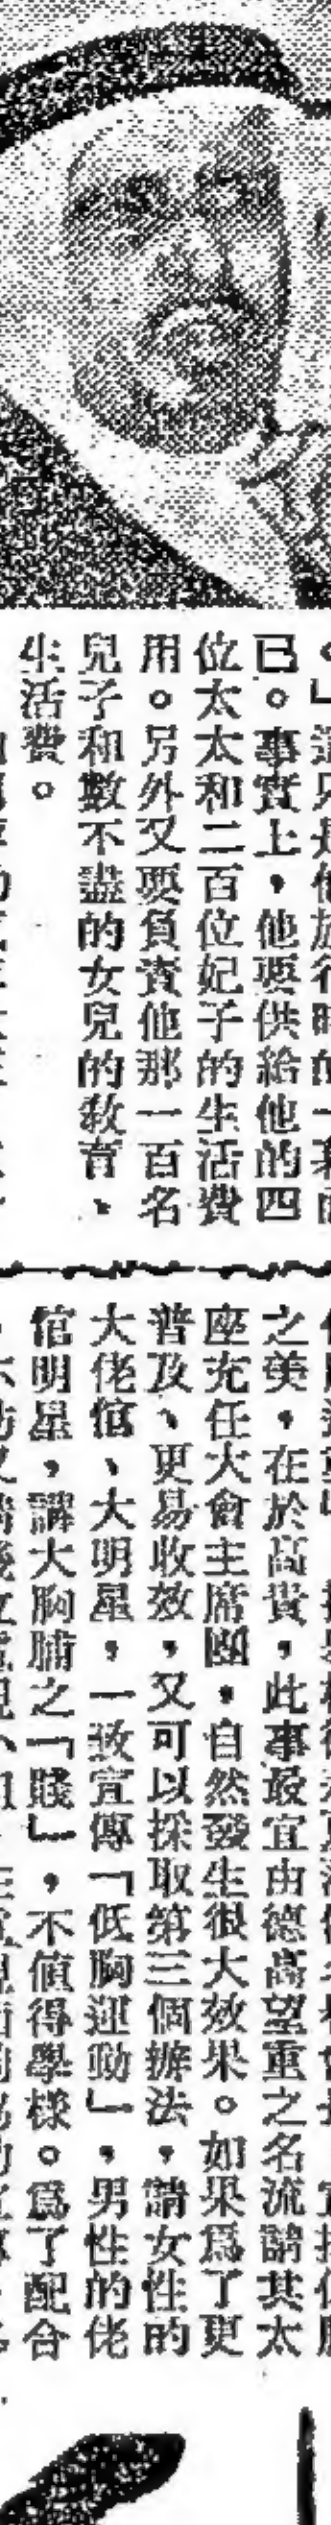 。」這只是他旅行時的一
已。事實上，他要供給他的四
位太太和二百位妃子的生活費
用。另外又要負責他那一百名
兒子和數不盡的女兒的敎育、
生活費。
之美，在於高貴，此事最宜由德高望重之名流請其太
座充任大會主席團，自然發生很大效果。如果爲了更
普及、更易收效，又可以採取第三個辦法，請女性的
大佬倌、大明星，一致宣傳「低胸運動」，男性的佬
倌明星，譁大胸脯之「賤」，不値得學樣。爲了配合